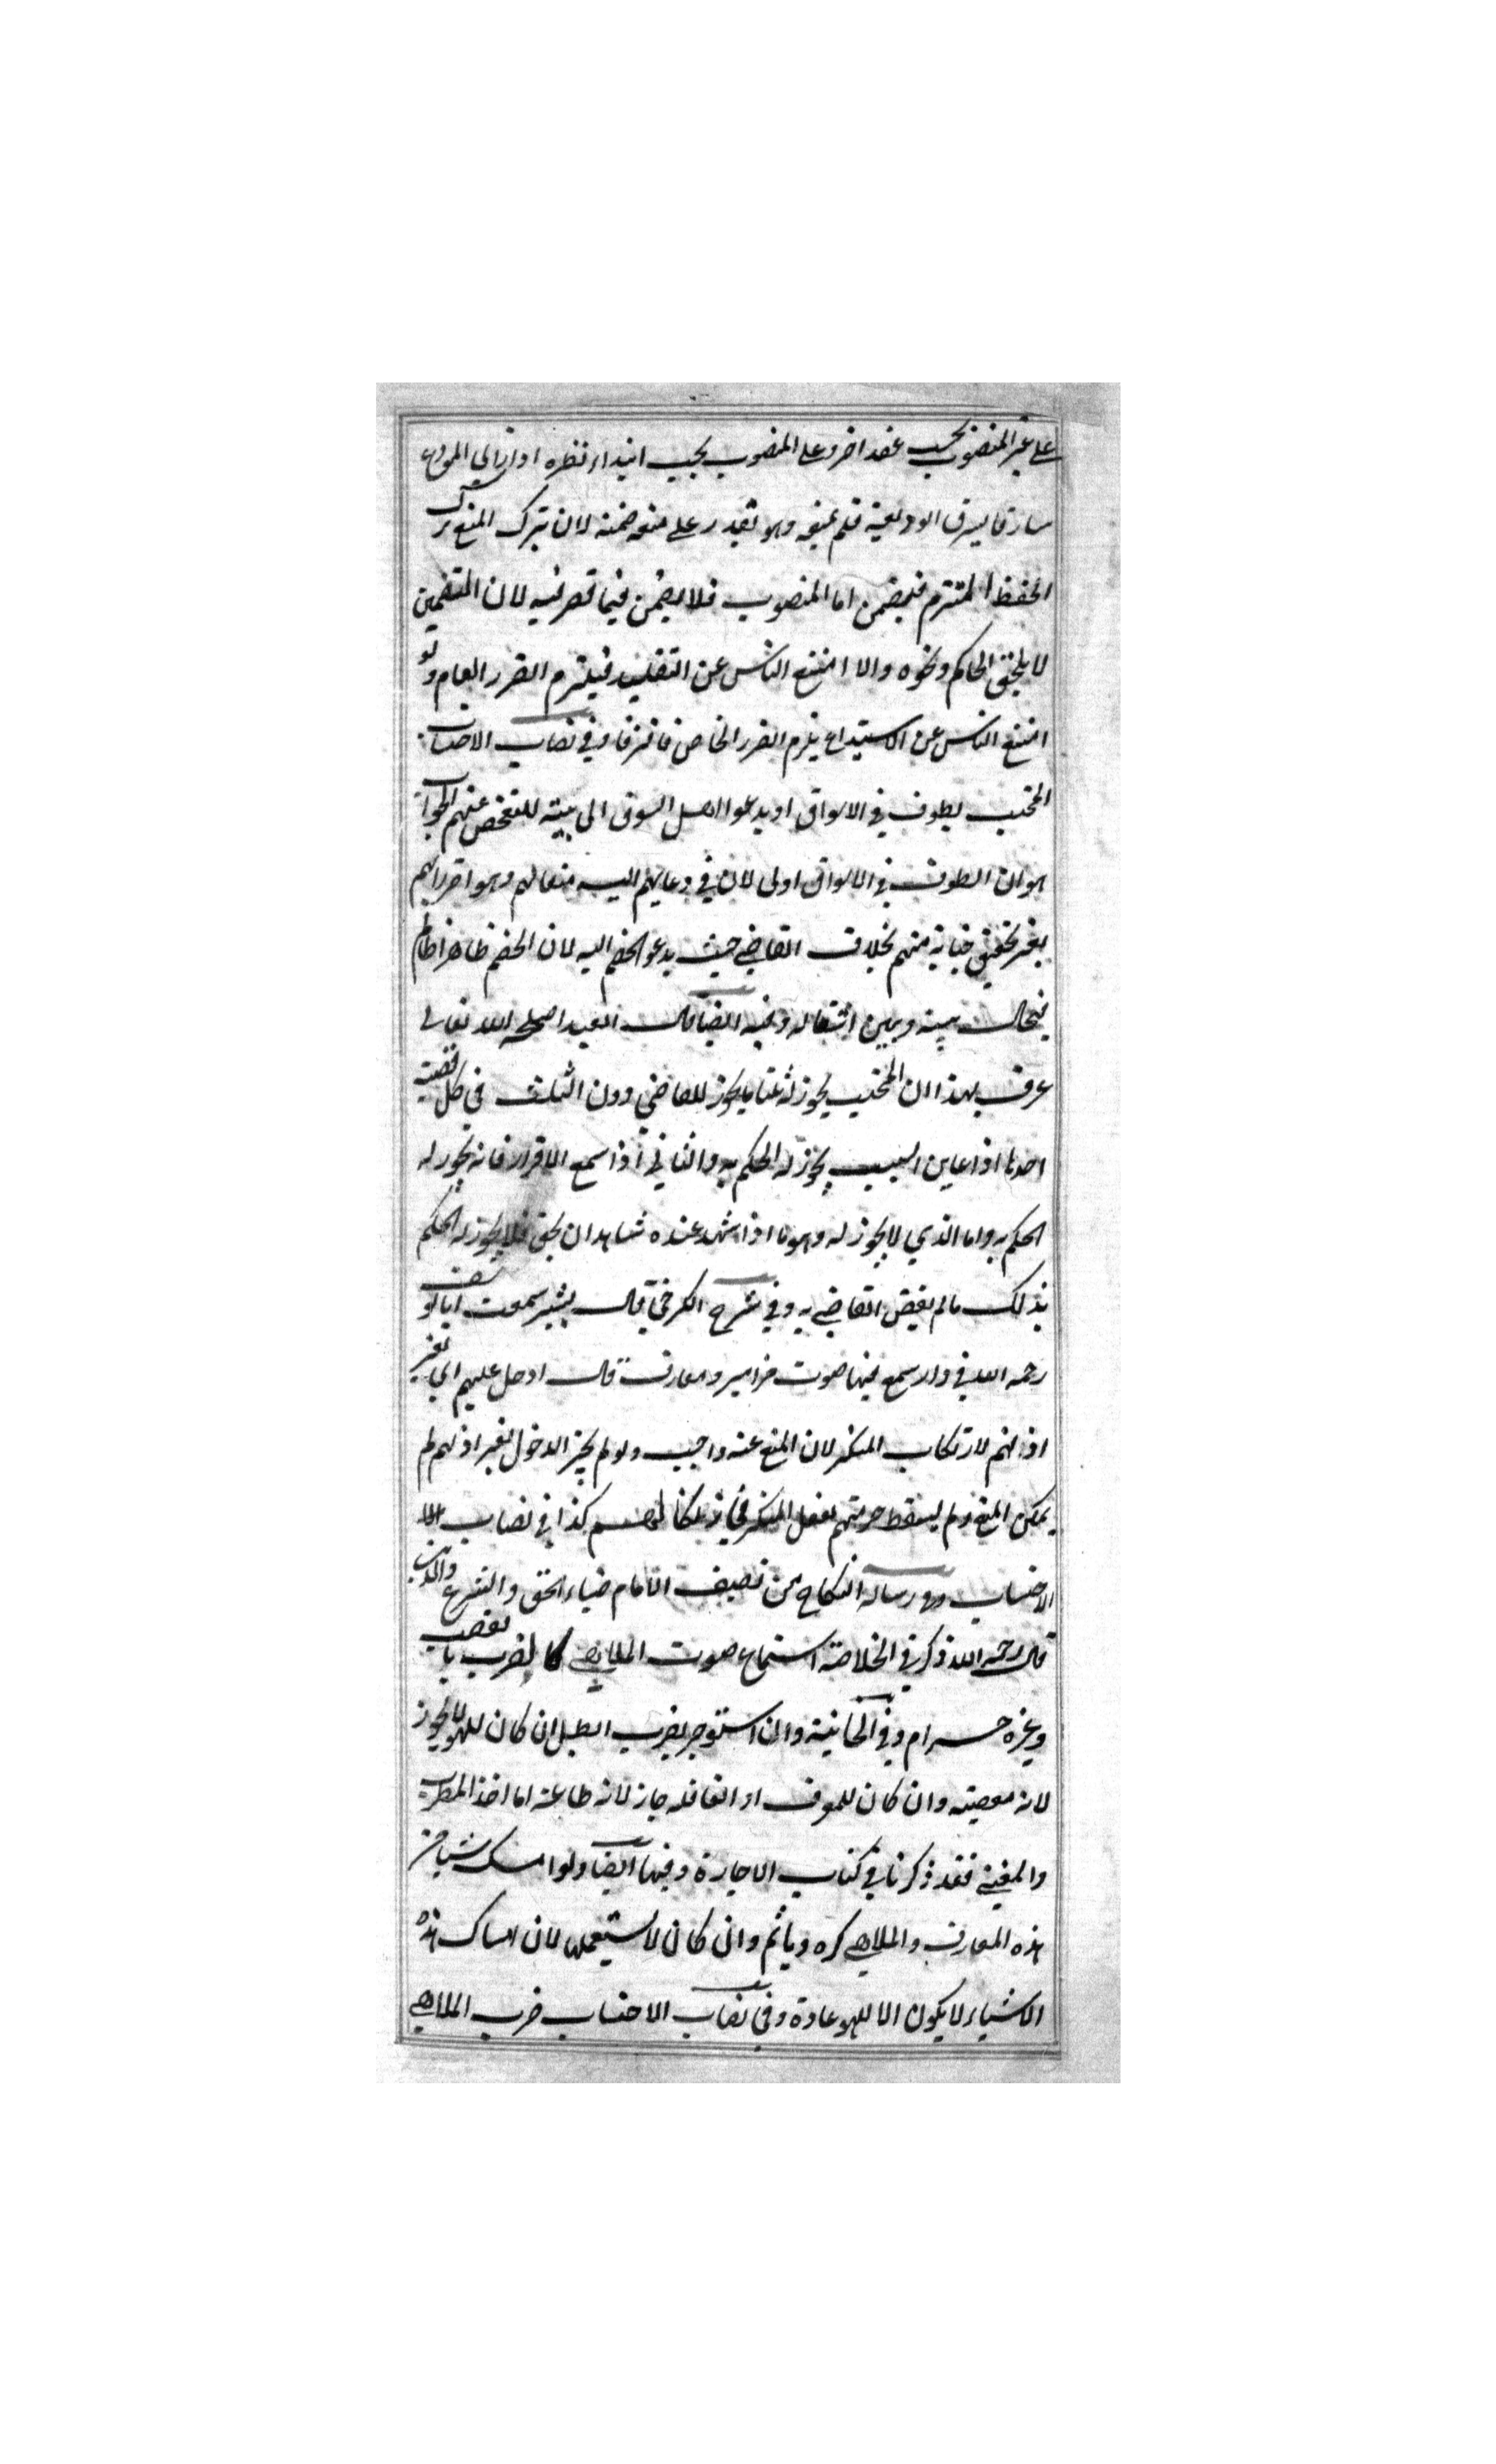 على غير المنصوب يجب عقد اخر وعلى المنصوب يجب ابتداء نظيره اذا راى المودع
سارقا يسرق الوديعة فلم يمنعه وهو يقدر على منعه ضمنه لان بترك المنع ترك
الحفظ الملتزم فيضمن اما المنصوب فلا يضمن فيما قصر فيه لان التضمين
لا يلحق الحاكم ونحوه والا امتنع الناس عن التقليد فيلتزم الضرر العام ولو
امتنع الناس عن الاستيداع يلزم الضرر الخاص فافترقا وفي نصاب الاحتساب
المحتسب يطوف في الاسواق او يدعوا اهل السوق الى بيته للتفحص عنهم الجواب
هو ان الطوف في الاسواق اولى لان في دعايهم اليه وهو اضرار بهم
بغير تحقيق خيانة منهم بخلاف القاضي حيث يدعو الخصم اليه لان الخصم ظاهرا ظالم
فيحال بينه وبين اشتغاله وفيه ايضا قال العبد اصلحه الله تعالى
عرف بهذا ان المحتسب يجوز له ثلثا ما يجوز للقاضي دون الثلث في كل قضية
احدها اذا عاين السبب يجوز له الحكم به والثاني اذا سمع الاقرار فانه يجوز له
الحكم به واما الذي لا يجوز له وهو ما اذا شهد عنده شاهدان بحق فلا يجوز له الحكم
بذلك ما لم يقض القاضي به وفي شرح الكرخي قال بشير سمعت ابا يوسف
رحمه الله في دار سمع فيها صوت مزامير ومعازف قال ادخل عليهم اي بغير
اذنهم لارتكاب المنكر لان المنع عنه واجب ولو لم يجز الدخول بغير اذنهم لم
يمكن المنع ولم يسقط حرمتهم بفعل المنكر كذا في نصاب
الاحتساب وفي رسالة النكاح من تصنيف الامام ضياء الحق والشرع والدين
قال رحمه الله ذكر في الخلاصة استماع صوت الملاهي كالضرب بالقصب
وغيره حرام وفي الخانية وان استوجر لضرب الطبل ان كان للهو لا يجوز
لانه معصية وان كان للموقف او القافلة جاز لانه طاعة اما اخذ المطرب
والمغني فقد ذكرنا في كتاب الاجارة وفيها ايضا ولو امسك شيئا من
هذه المعازف والملاهي كره وياثم وان كان لا يستعملها لان امساك هذه
الاشياء لا يكون الا للهو عادة وفي نصاب الاحتساب ضرب الملاهي